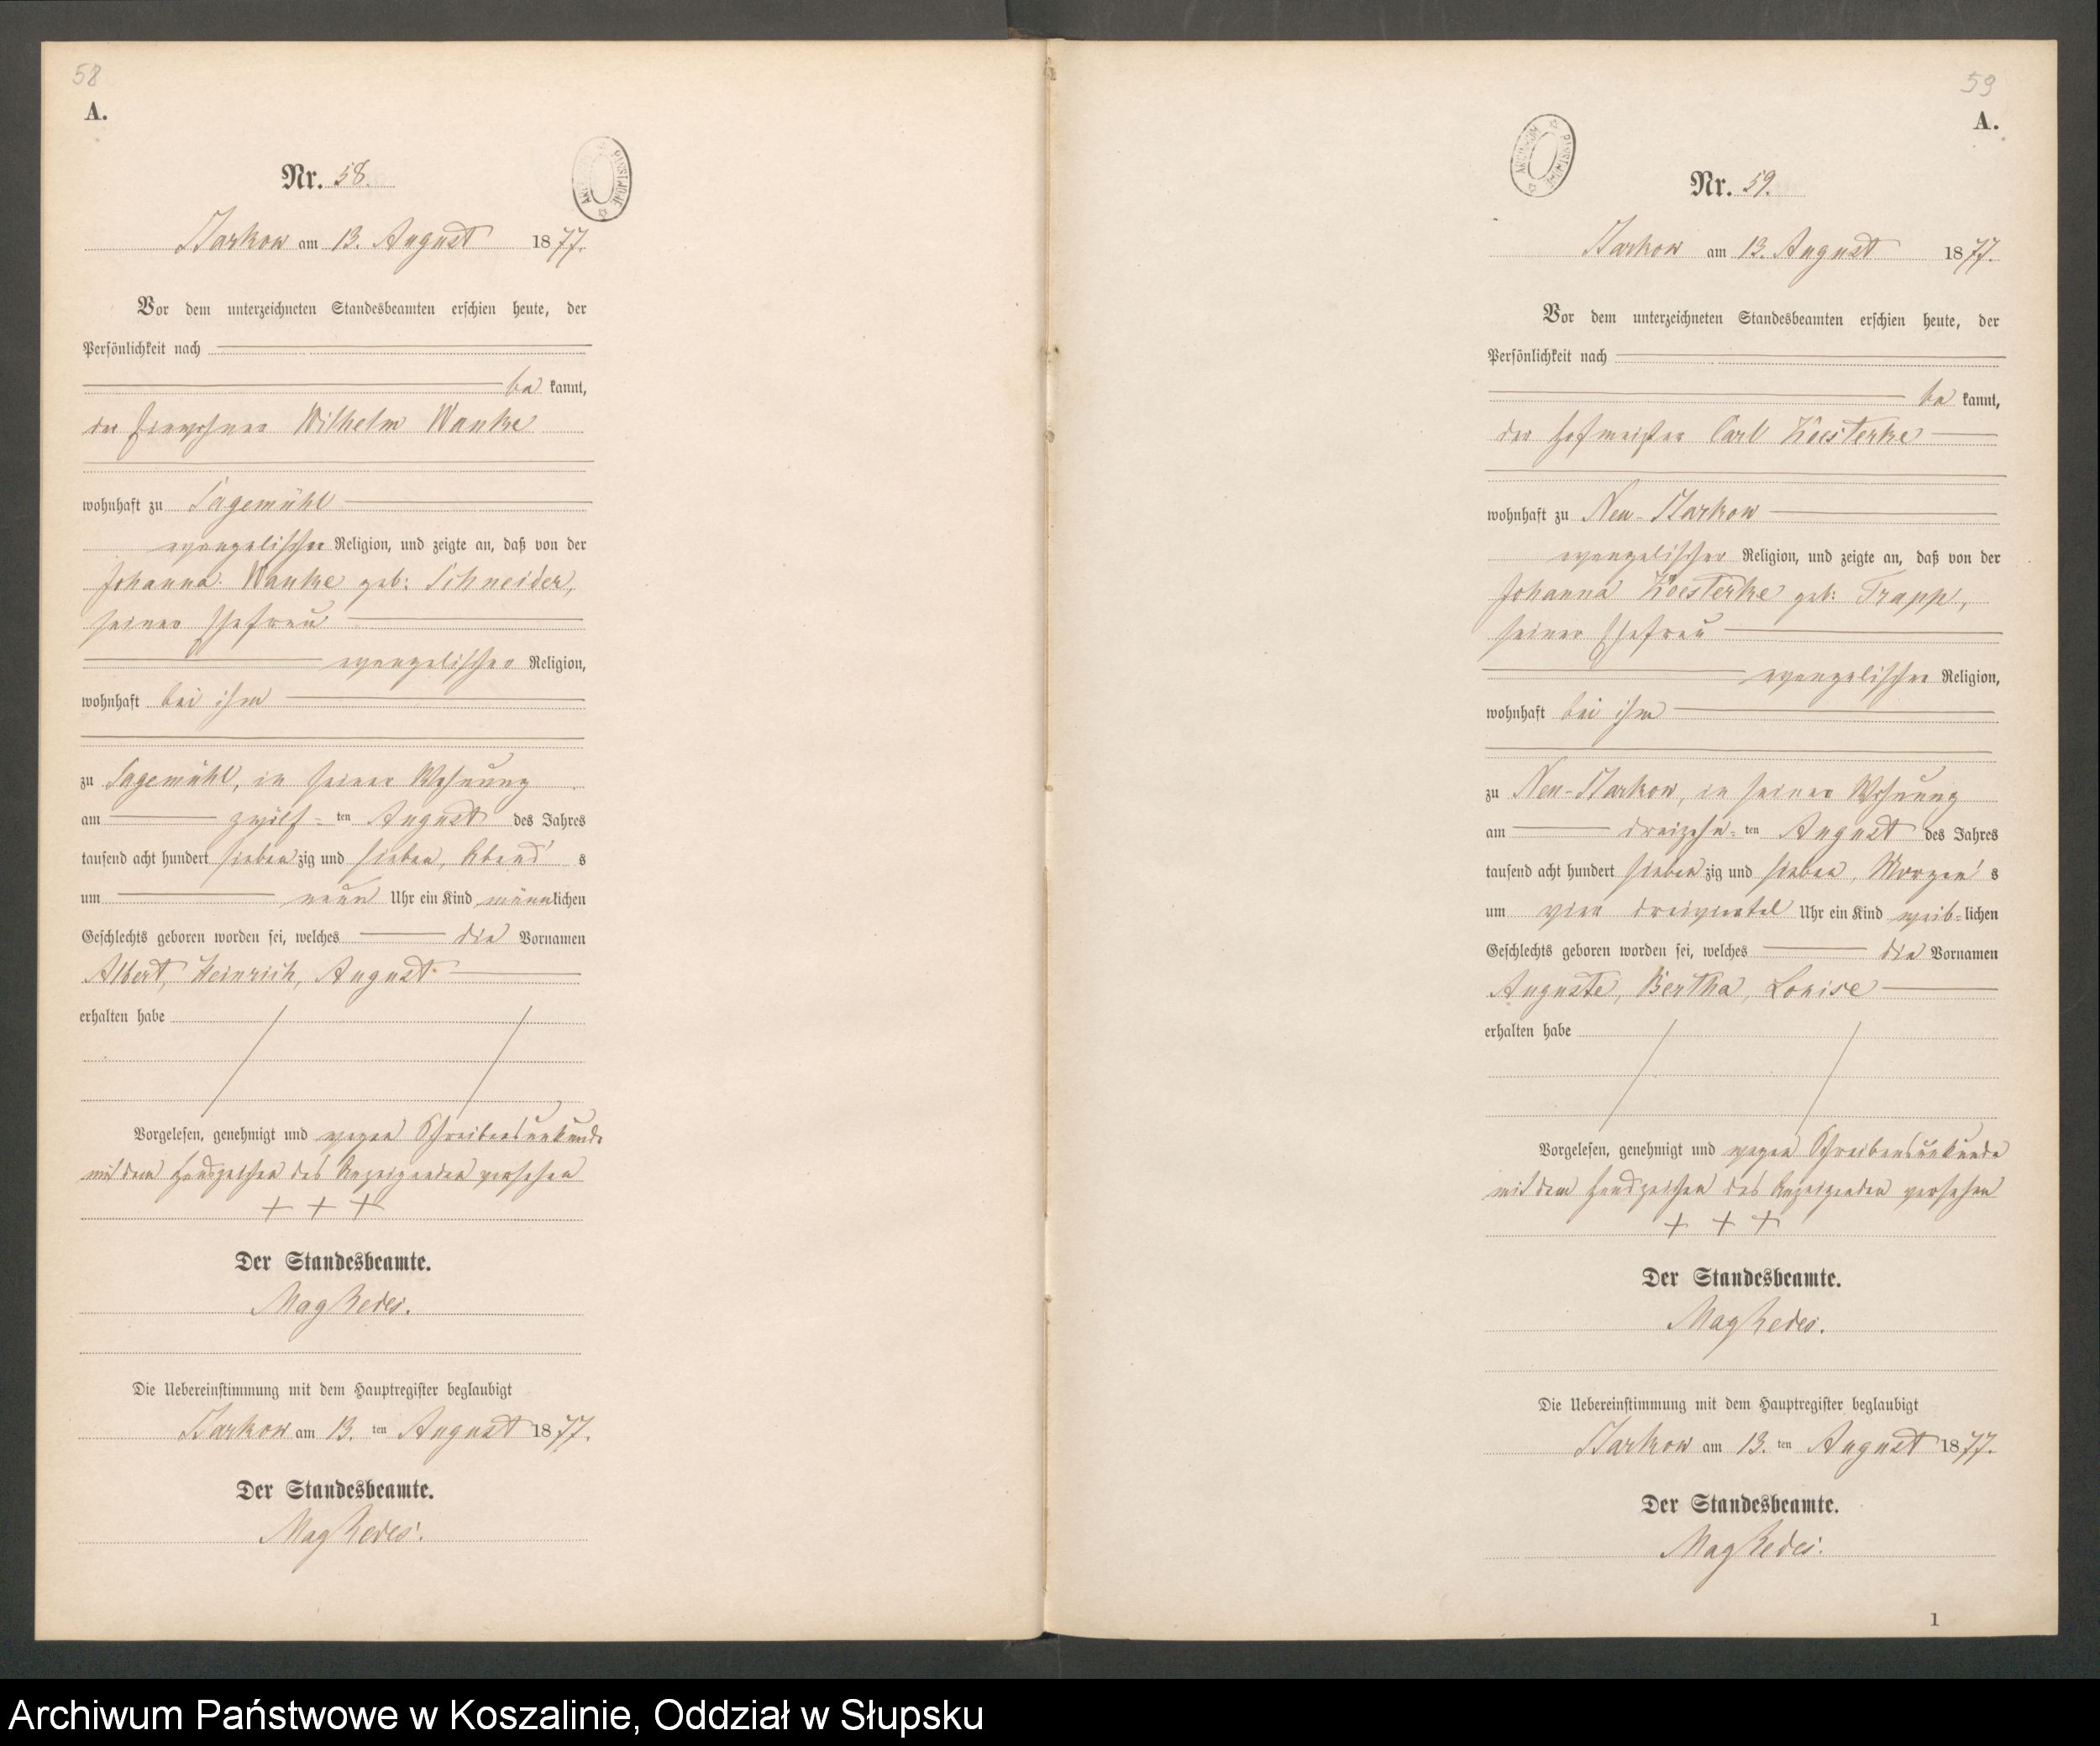 58
A.
Nr. 58.
Starkow am 13. August 1877.
Vor dem unterzeichneten Standesbeamten erschien heute, der
Persönlichkeit nach
be kannt,
der Einwohner Wilhelm Wanke
wohnhaft zu Sagemühl
evangelischer Religion, und zeigte an, daß von der
Johanna Wanke geb: Schneider,
seiner Ehefrau
evangelischer Religion,
wohnhaft bei ihm
zu Sagemühl, in seiner Wohnung
am zwölf-ten August des Jahres
tausend acht hundert siebenzig und sieben, Abend's
um neun Uhr ein Kind männlichen
Geschlechts geboren worden sei, welches die Vornamen
Albert, Heinrich, August
erhalten habe
Vorgelesen, genehmigt und wegen Schreibensunkunde
mit dem Handzeichen des Anzeigenden versehen
+ + +
Der Standesbeamte.
Die Uebereinstimmung mit dem Hauptregister beglaubigt
Starkow am 13. ten August 1877.
Der Standesbeamte.
59
A.
Nr. 59.
Starkow am 13. August 1877.
Vor dem unterzeichneten Standesbeamten erschien heute, der
Persönlichkeit nach
be kannt,
der Hofmeister Carl Koesterke
wohnhaft zu Neu-Starkow
evangelischer Religion, und zeigte an, daß von der
Johanna Koesterke geb: Trapp,
seiner Ehefrau
evangelischer Religion,
wohnhaft bei ihm
zu Neu-Starkow, in seiner Wohnung
am dreizehn-ten August des Jahres
tausend acht hundert siebenzig und sieben, Morgen's
um vier dreiviertel Uhr ein Kind weib-lichen
Geschlechts geboren worden sei, welches die Vornamen
Auguste, Bertha, Louise
erhalten habe
Vorgelesen, genehmigt und wegen Schreibensunkunde
mit dem Handzeichen des Anzeigenden versehen
+ + +
Der Standesbeamte.
Die Uebereinstimmung mit dem Hauptregister beglaubigt
Starkow am 13. ten August 1877.
Der Standesbeamte.
1
Archiwum Państwowe w Koszalinie, Oddział w Słupsku